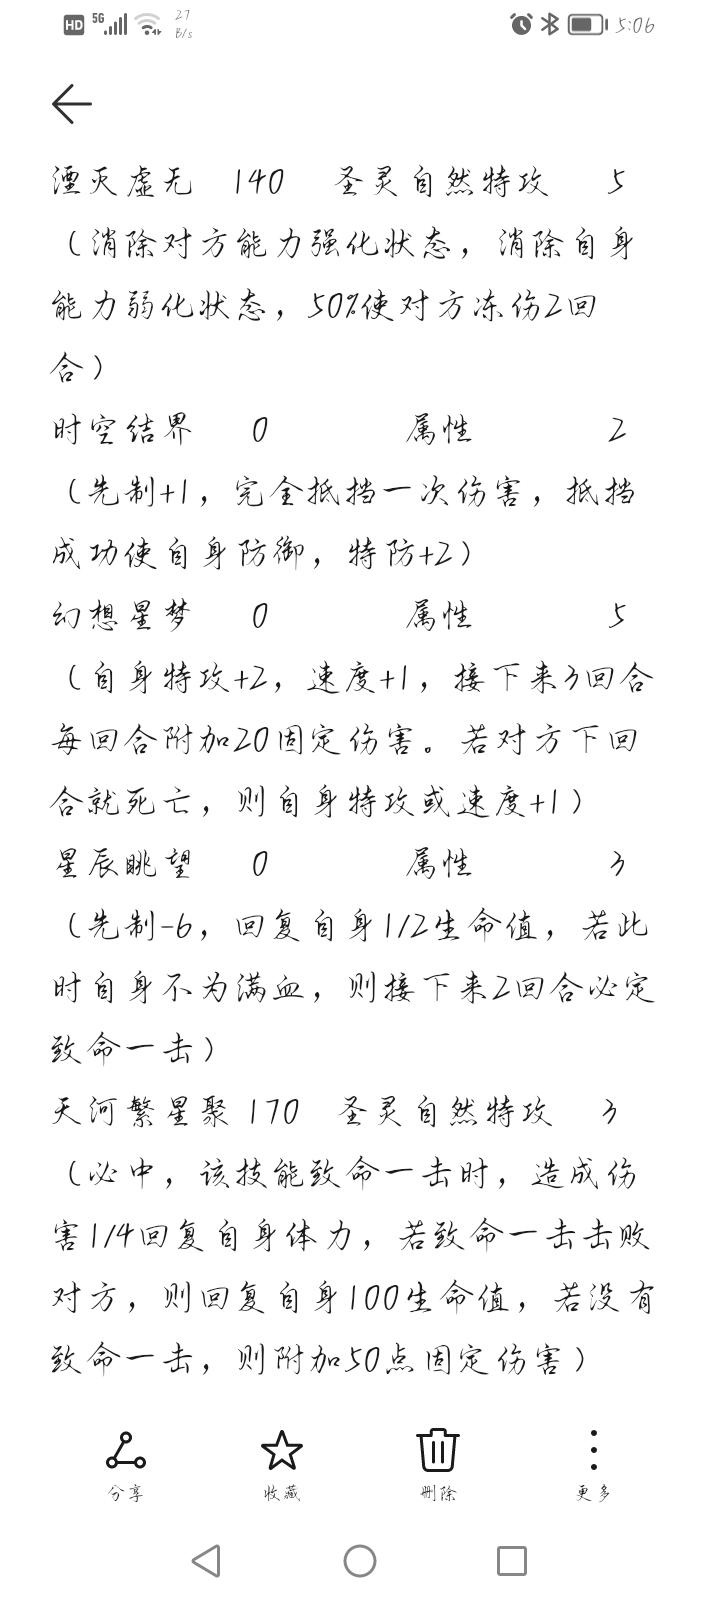 HD 5G 27 B/s 5:06
湮灭虚无 140 圣灵自然特攻 5
（消除对方能力强化状态，消除自身
能力弱化状态，50%使对方冻伤2回
合）
时空结界 0 属性 2
（先制+1，完全抵挡一次伤害，抵挡
成功使自身防御，特防+2）
幻想星梦 0 属性 5
（自身特攻+2，速度+1，接下来3回合
每回合附加20固定伤害。若对方下回
合就死亡，则自身特攻或速度+1）
星辰眺望 0 属性 3
（先制-6，回复自身1/2生命值，若此
时自身不为满血，则接下来2回合必定
致命一击）
天河繁星聚 170 圣灵自然特攻 3
（必中，该技能致命一击时，造成伤
害1/4回复自身体力，若致命一击击败
对方，则回复自身100生命值，若没有
致命一击，则附加50点固定伤害）
分享 收藏 删除 更多